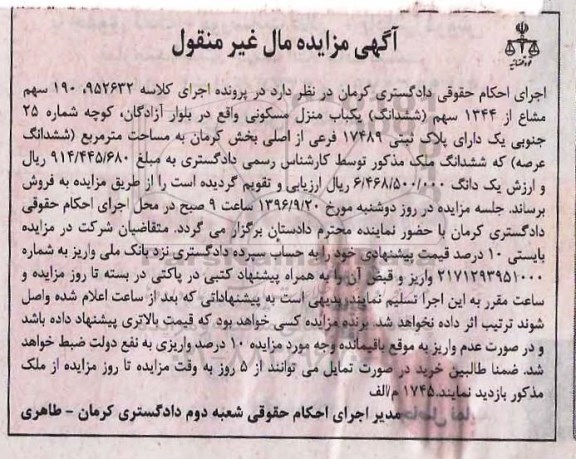 آگهی مزایده مال غیر منقول
اجرای احکام حقوقی دادگستری کرمان در نظر دارد در پرونده اجرای کلاسه ۹۵۲۶۳۲، ۱۹۰ سهم
مشاع از ۱۳۴۴ سهم (ششدانگ) یکباب منزل مسکونی واقع در بلوار آزادگان، کوچه شماره ۲۵
جنوبی یک دارای پلاک ثبتی ۱۷۴۸۹ فرعی از اصلی بخش کرمان به مساحت مترمربع (ششدانگ
عرصه) که ششدانگ ملک مذکور توسط کارشناس رسمی دادگستری به مبلغ ۹۱۴/۴۴۵/۶۸۰ ریال
و ارزش یک دانگ ۶/۴۶۸/۵۰۰/۰۰۰ ریال ارزیابی و تقویم گردیده است را از طریق مزایده به فروش
برساند. جلسه مزایده در روز دوشنبه مورخ ۱۳۹۶/۹/۲۰ ساعت ۹ صبح در محل اجرای احکام حقوقی
دادگستری کرمان با حضور نماینده محترم دادستان برگزار می گردد. متقاضیان شرکت در مزایده
بایستی ۱۰ درصد قیمت پیشنهادی خود را به حساب سپرده دادگستری نزد بانک ملی واریز به شماره
۲۱۷۱۲۹۳۹۵۱۰۰۰ واریز و قبض آن را به همراه پیشنهاد کتبی در پاکتی در بسته تا روز مزایده و
ساعت مقرر به این اجرا تسلیم نمایند، بدیهی است به پیشنهاداتی که بعد از ساعت اعلام شده واصل
شوند ترتیب اثر داده نخواهد شد. برنده مزایده کسی خواهد بود که قیمت بالاتری پیشنهاد داده باشد
و در صورت عدم واریز به موقع باقیمانده وجه مورد مزایده ۱۰ درصد واریزی به نفع دولت ضبط خواهد
شد. ضمنا طالبین خرید در صورت تمایل می توانند از ۵ روز به وقت مزایده تا روز مزایده از ملک
مذکور بازدید نمایند.۱۷۴۵ م/الف
مدیر اجرای احکام حقوقی شعبه دوم دادگستری کرمان - طاهری